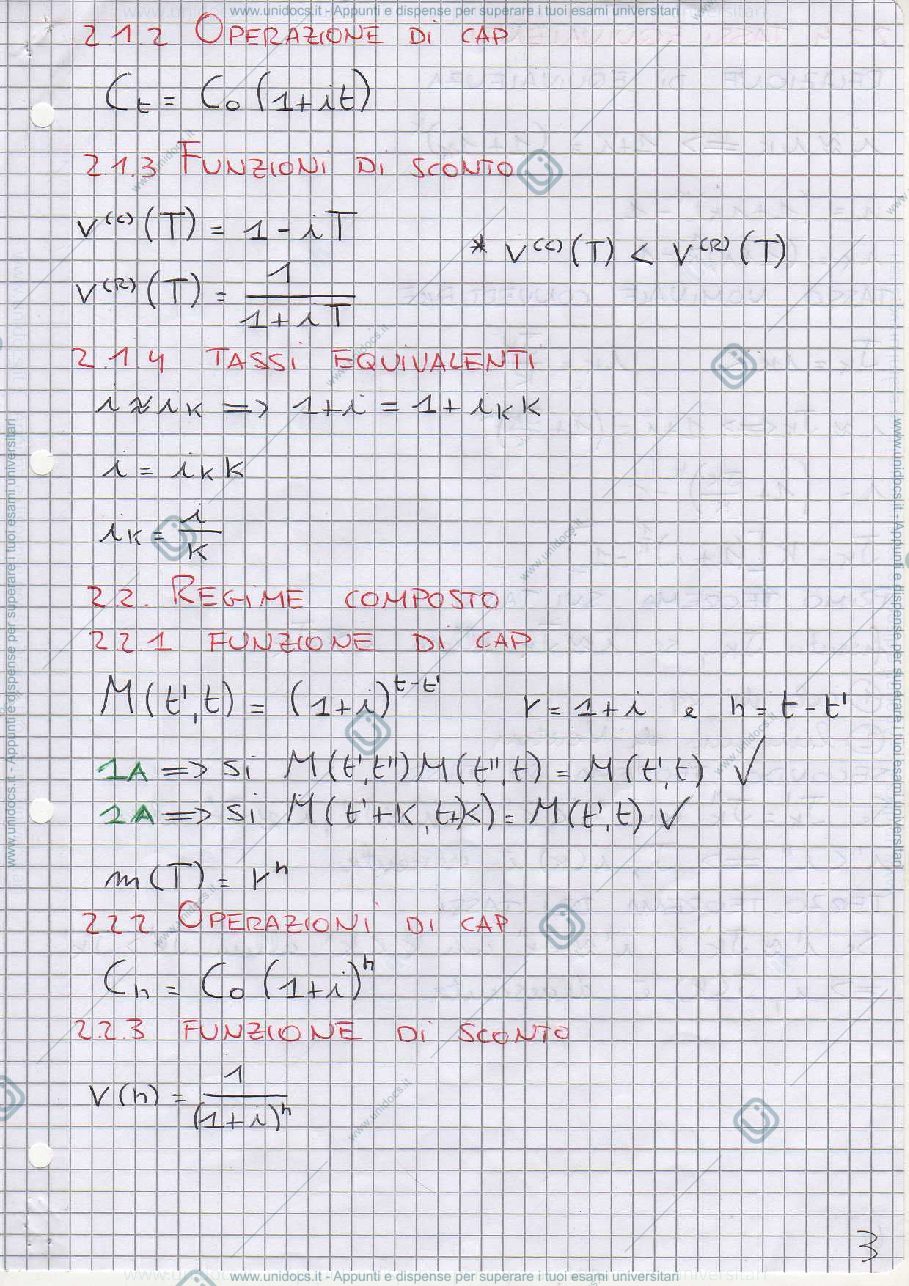 www.unidocs.it - Appunti e dispense per superare i tuoi esami universitari
2.1.2 OPERAZIONE DI CAP
Ct = C0 (1+it)
2.1.3 FUNZIONI DI SCONTO
v^(C) (T) = 1 - iT
* v^(C) (T) < v^(R) (T)
v^(R) (T) = 1 / (1+iT)
2.1.4 TASSI EQUIVALENTI
i ≈ iK => 1+i = 1+iK K
i = iK K
iK = i / K
2.2. REGIME COMPOSTO
2.2.1 FUNZIONE DI CAP
M(t',t) = (1+i)^(t-t')    r = 1+i e h = t-t'
1A => Si M(t',t'')M(t'',t) = M(t',t) ✓
2A => Si M(t'+K,t+K) = M(t',t) ✓
m(T) = r^h
2.2.2 OPERAZIONI DI CAP
Ch = C0 (1+i)^h
2.2.3 FUNZIONE DI SCONTO
v(h) = 1 / (1+i)^h
3
www.unidocs.it - Appunti e dispense per superare i tuoi esami universitari
www.unidocs.it - Appunti e dispense per superare i tuoi esami universitari
www.unidocs.it - Appunti e dispense per superare i tuoi esami universitari